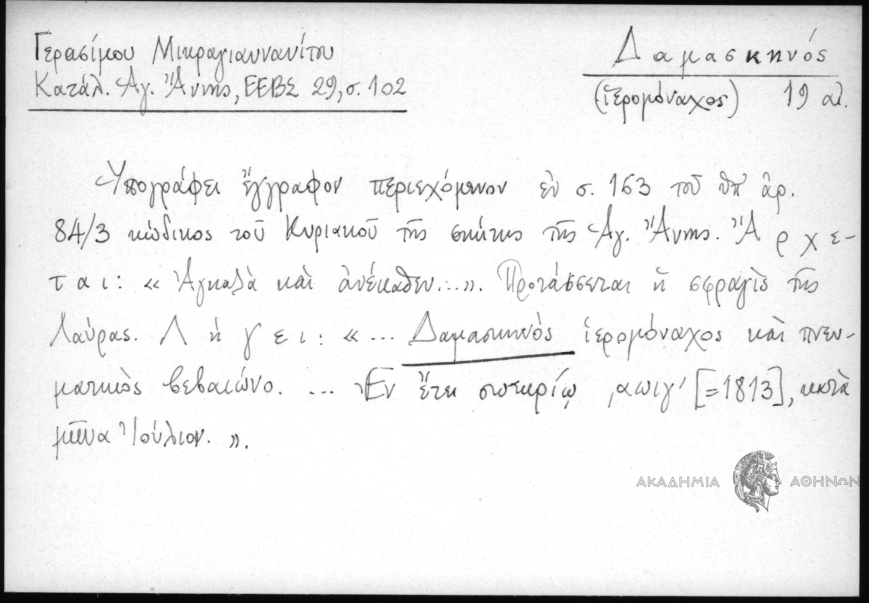 Γερασίμου Μικραγιαννανίτου
Κατάλ. Ἁγ. Ἄννης, ΕΕΒΣ 29, σ. 102
Δαμασκηνός
(ἱερομόναχος) 19 αἰ.
Ὑπογράφει ἔγγραφον περιεχόμενον ἐν σ. 163 τοῦ ὑπ' ἀρ.
84/3 κώδικος τοῦ Κυριακοῦ τῆς σκήτης τῆς Ἁγ. Ἄννης. Ἄρχε-
ται: « Ἀγκαλὰ καὶ ἀνέκαθεν...». Προτάσσεται ἡ σφραγὶς τῆς
Λαύρας. Λήγει: «... Δαμασκηνὸς ἱερομόναχος καὶ πνευ-
ματικὸς βεβαιώνο. ... Ἐν ἔτει σωτηρίῳ ͵αωιγ' [=1813], κατὰ
μῆνα Ἰούλιον. ».
ΑΚΑΔΗΜΙΑ ΑΘΗΝΩΝ